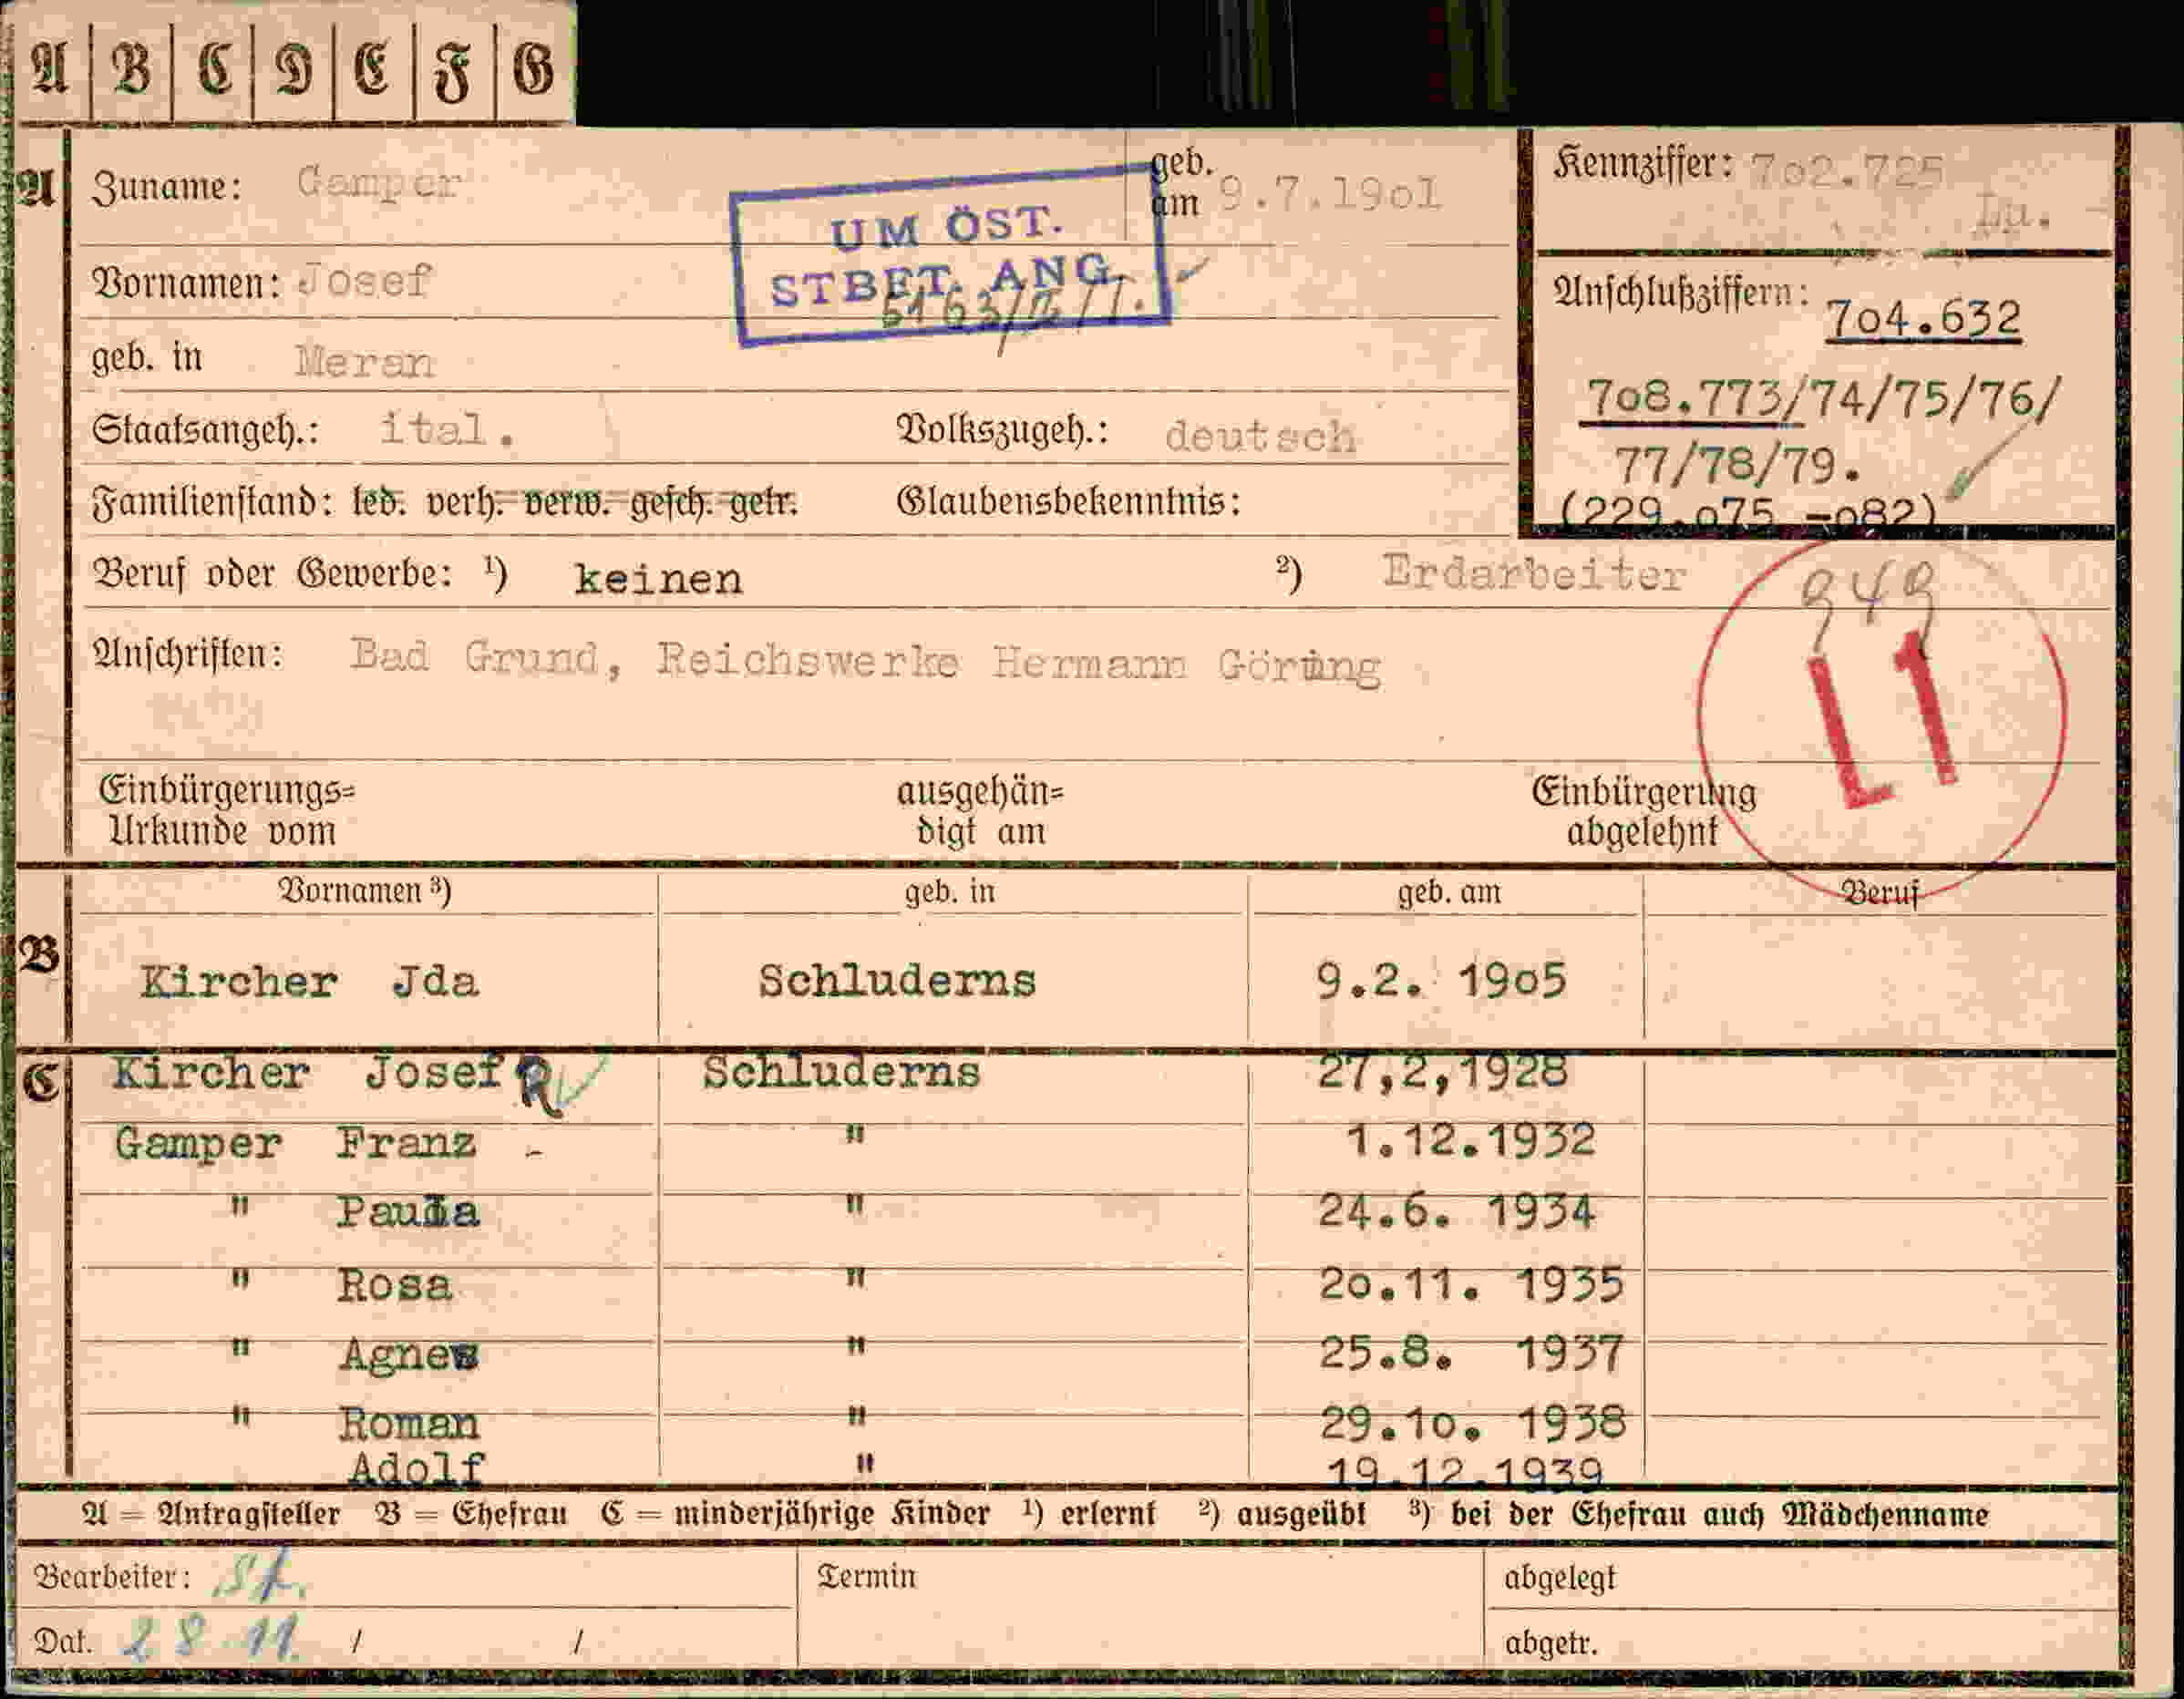 A B C D E F G
A Zuname: Gamper geb. am 9.7.1901
Kennziffer: 702.725
Lu.
UM ÖST.
STBET. ANG.
Vornamen: Josef
Anschlußziffern: 704.632
geb. in Meran
708.773/74/75/76/
Staatsangeh.: ital. Volkszugeh.: deutsch
77/78/79.
Familienstand: led. verh. verw. gesch. getr. Glaubensbekenntnis:
(229.o75 -o82)
Beruf oder Gewerbe: 1) keinen 2) Erdarbeiter
949
L1
Anschriften: Bad Grund, Reichswerke Hermann Göring
Einbürgerungs= ausgehän= Einbürgerung
Urkunde vom digt am abgelehnt
Vornamen 3) geb. in geb. am Beruf
B Kircher Jda Schluderns 9.2. 19o5
C Kircher Josef Schluderns 27,2,1928
Gamper Franz - " 1.12.1932
" Paula " 24.6. 1934
" Rosa " 2o.11. 1935
" Agnes " 25.8. 1937
" Roman " 29.1o. 1938
Adolf " 19.12.1939
A = Antragsteller B = Ehefrau C = minderjährige Kinder 1) erlernt 2) ausgeübt 3) bei der Ehefrau auch Mädchenname
Bearbeiter: St. Termin abgelegt
Dat. 28 11. / / abgetr.